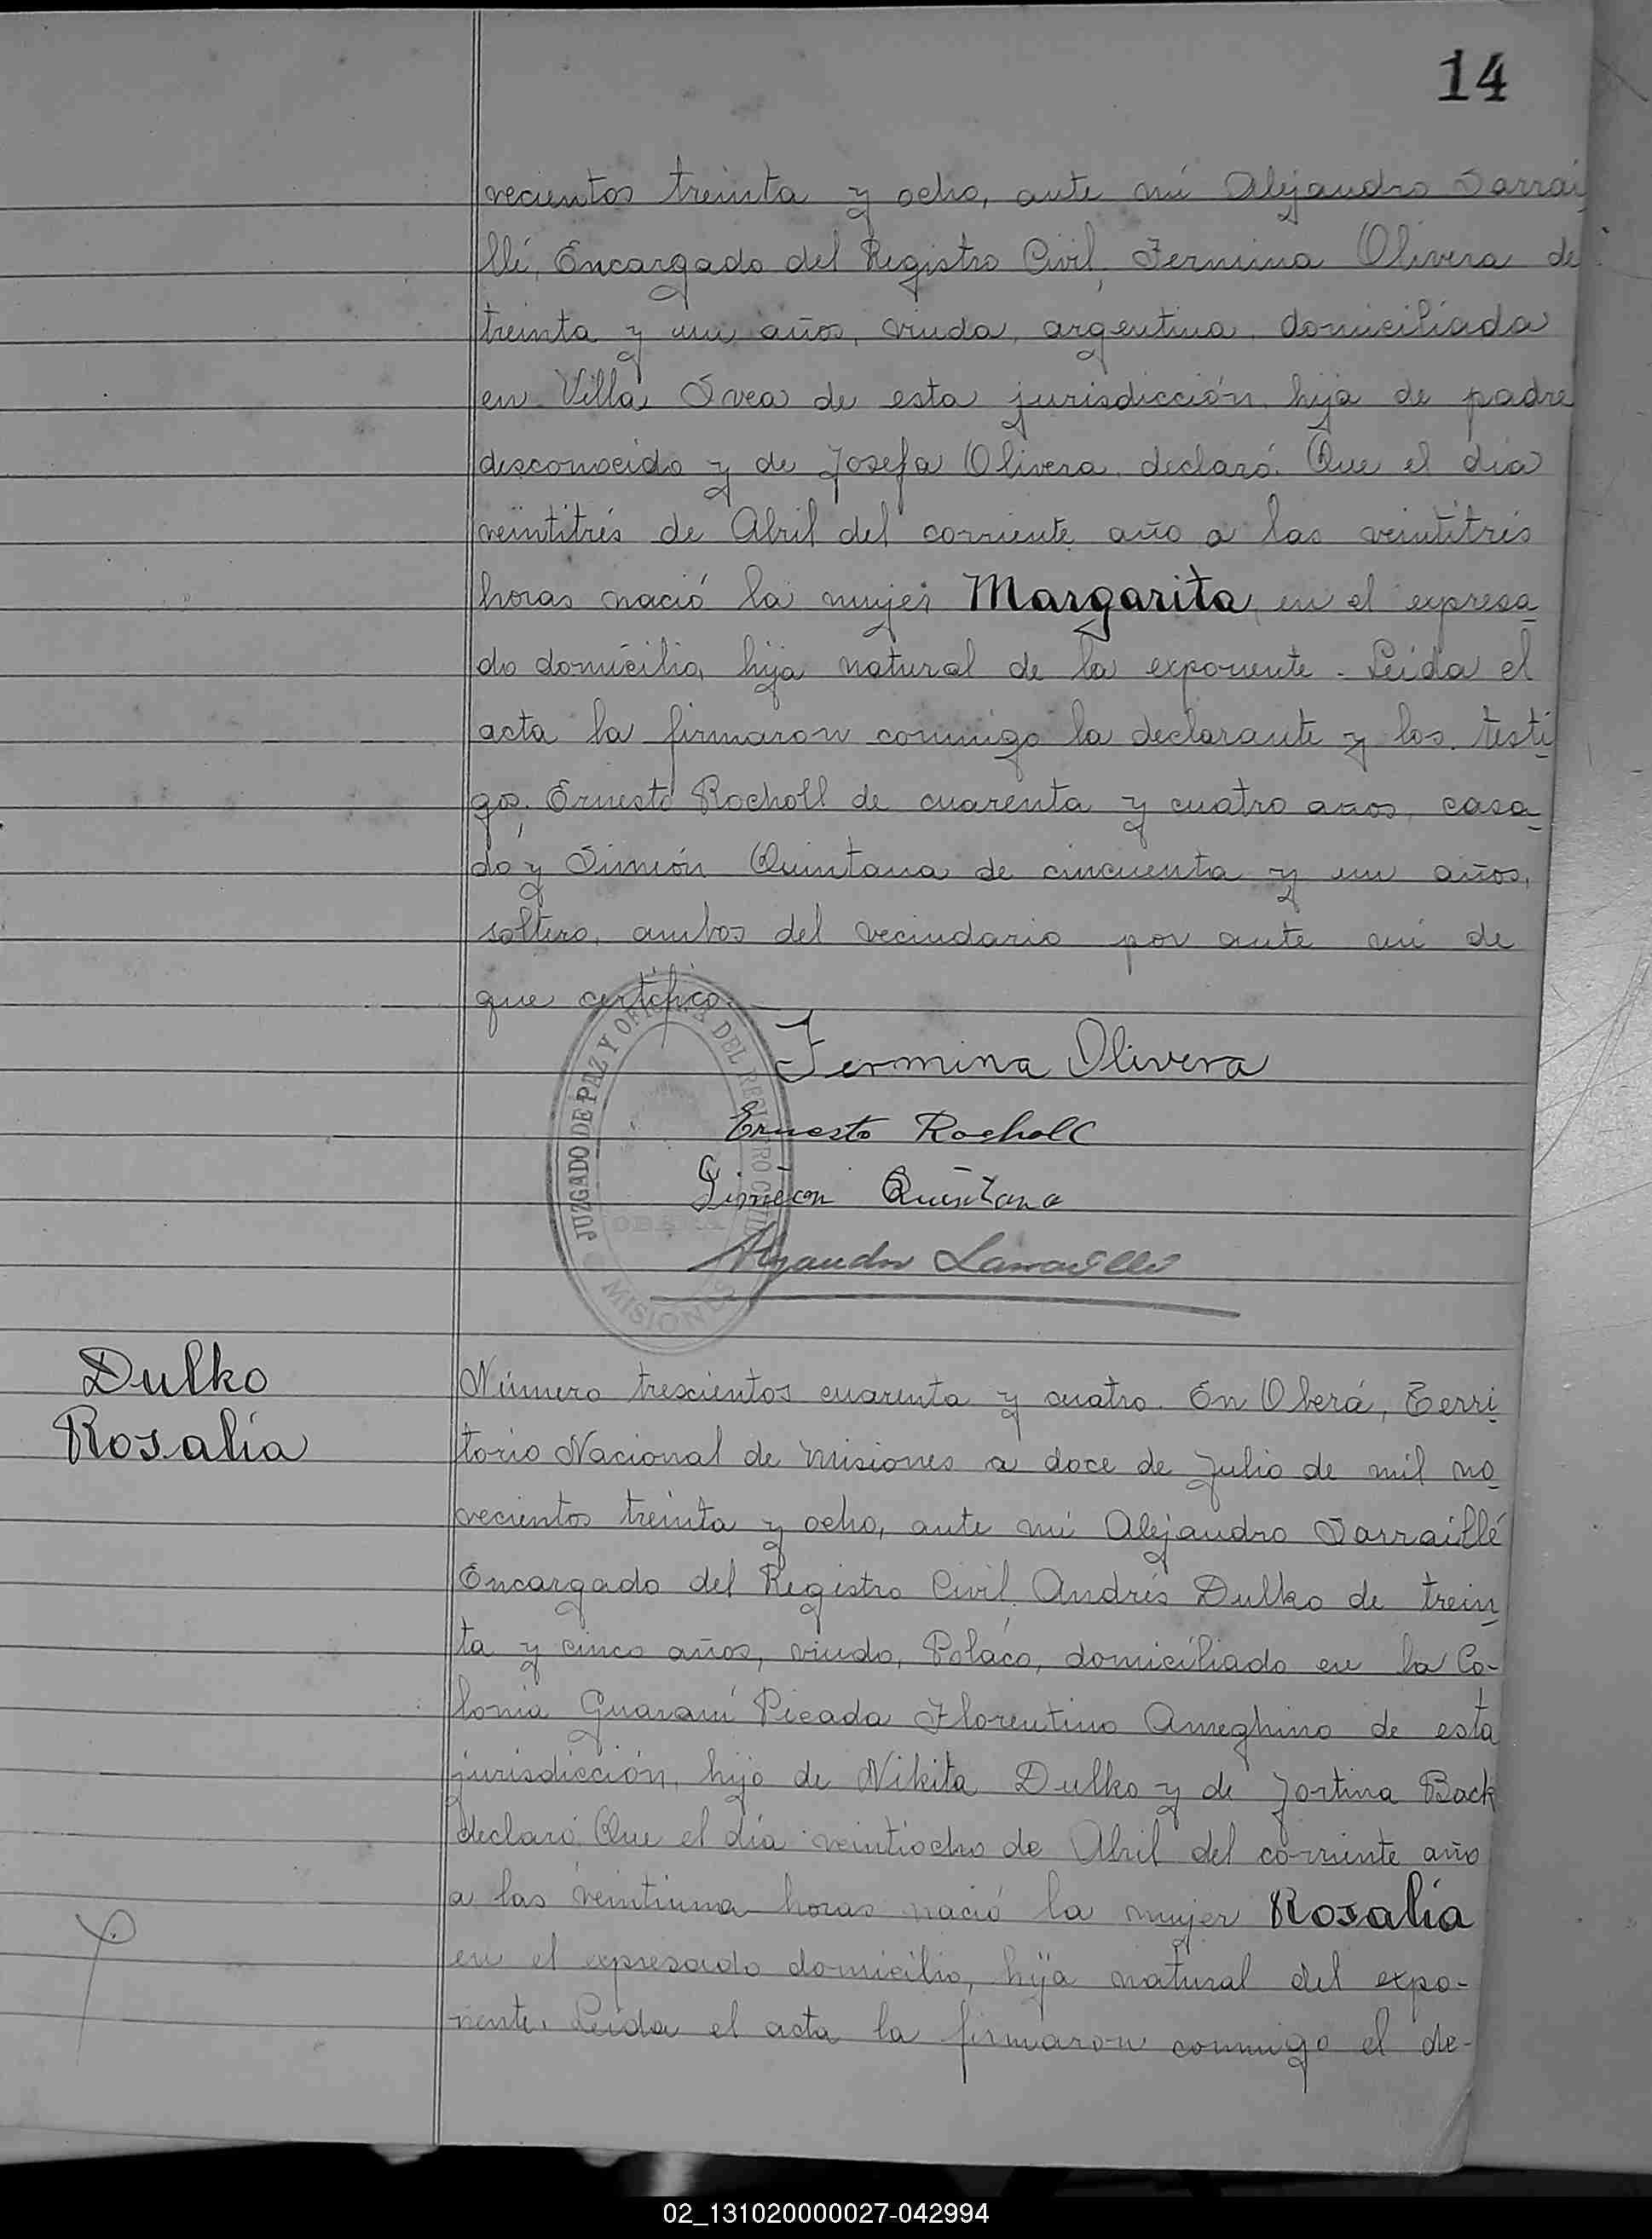 14
vecientos treinta y ocho, ante mí Alejandro Sarrai
llé, Encargado del Registro Civil, Fermina Olivera de
treinta y un años, viuda, argentina, domiciliada
en Villa Svea de esta jurisdicción, hija de padre
desconocido y de Josefa Olivera, declaró: Que el día
veintitrés de Abril del corriente año a las veintitrés
horas nació la mujer Margarita, en el expresa-
do domicilio, hija natural de la exponente. Leída el
acta la firmaron conmigo la declarante y los testi-
gos, Ernesto Rocholl de cuarenta y cuatro años, casa-
do y Simeón Quintana de cincuenta y un años,
soltero, ambos del vecindario por ante mí de
que certifico.
JUZGADO DE PAZ Y OFICINA DEL REGISTRO CIVIL
OBERA
MISIONES
Fermina Olivera
Ernesto Rocholl
Simeon Quintana
Alejandro Sarraillé
Dulko
Rosalía
Número trescientos cuarenta y cuatro. En Oberá, Terri-
torio Nacional de Misiones a doce de Julio de mil no-
vecientos treinta y ocho, ante mí Alejandro Sarraillé
Encargado del Registro Civil, Andrés Dulko de trein-
ta y cinco años, viudo, Polaco, domiciliado en la Co-
lonia Guaraní Picada Florentino Ameghino de esta
jurisdicción, hijo de Nikita Dulko y de Jortina Back
declaró: Que el día veintiocho de Abril del corriente año
a las veintiuna horas nació la mujer Rosalía
en el expresado domicilio, hija natural del expo-
nente. Leída el acta la firmaron conmigo el de-
02_131020000027-042994